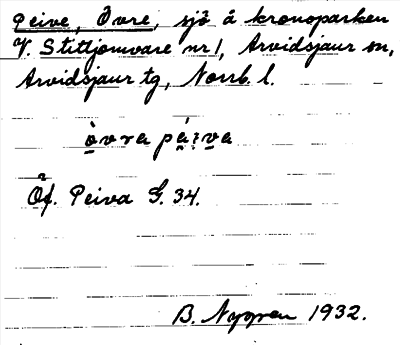 Peive, Övre, sjö å kronoparken
V. Stittjomvare nr 1, Arvidsjaur sn,
Arvidsjaur tg, Norrb. l.
òvra páiva
Öf. Peiva G. 34.
B. Nygren 1932.